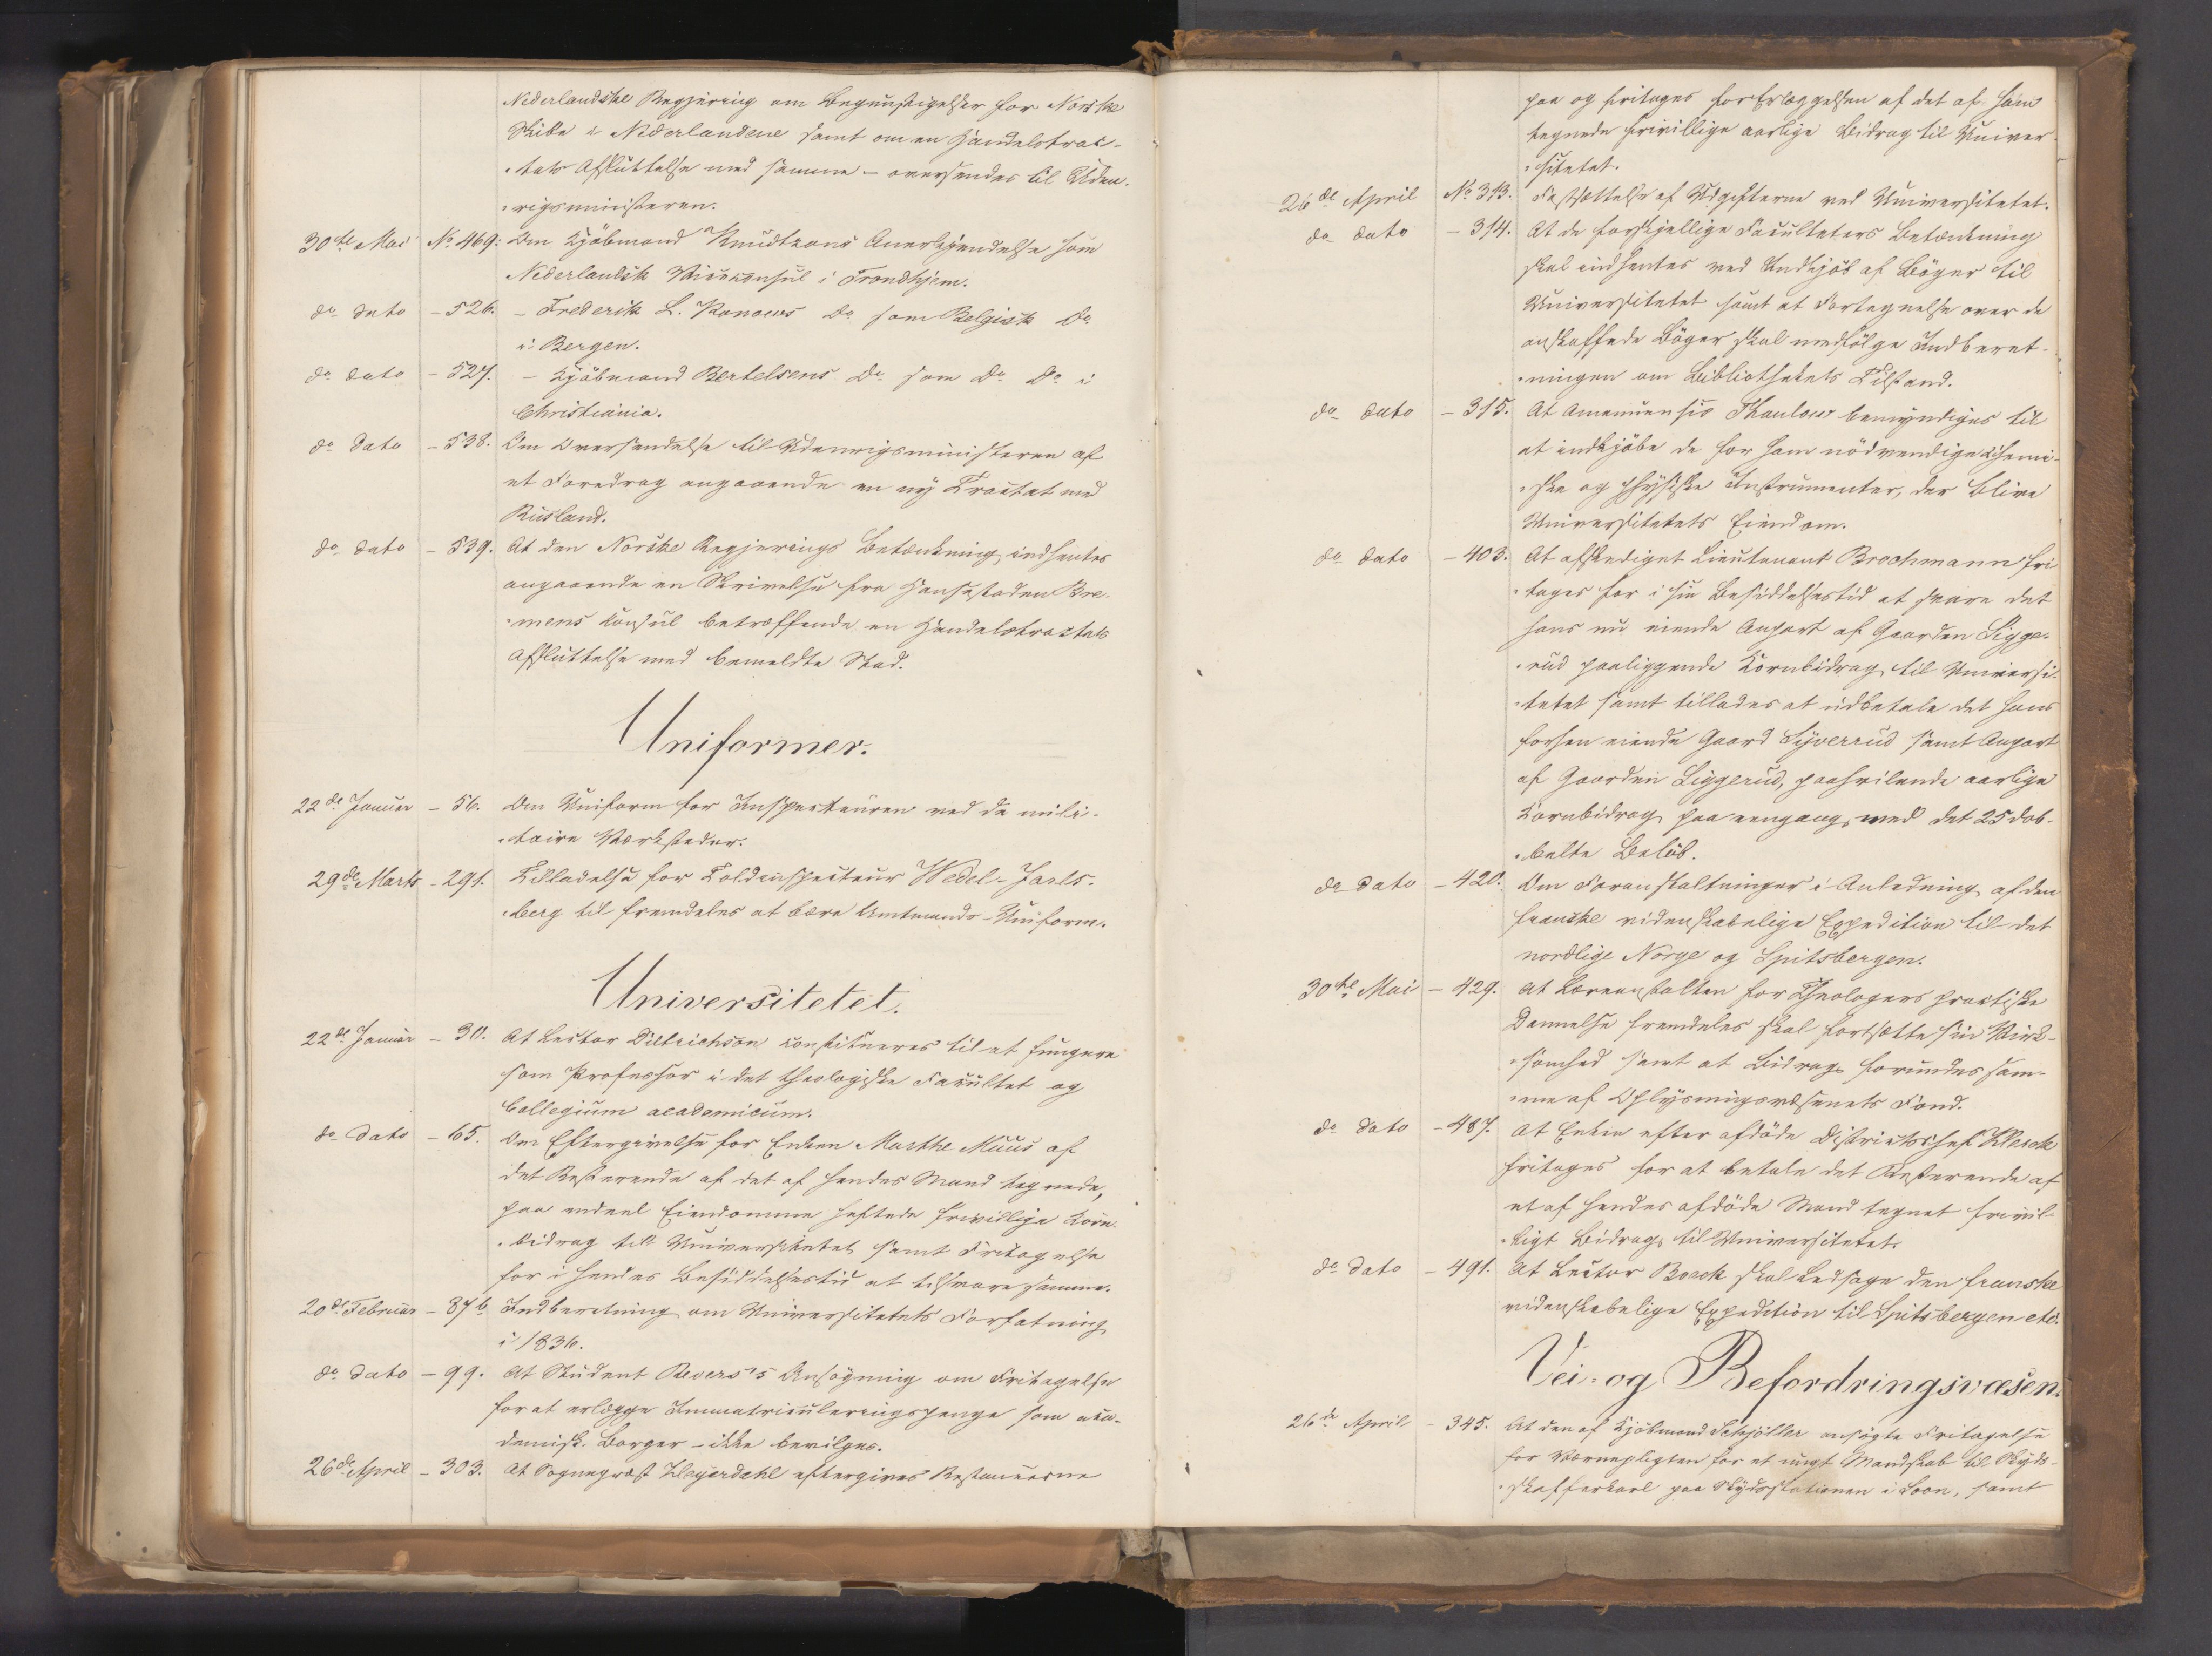 Nederlandske Regjering om Begunstigelser for Norske
Skibe i Nederlandene samt om en Handelstrac-
tats Afsluttelse med samme – oversendes til Uden-
rigsministeren.
30te Mai No 469: Om Kjöbmand Knudtzons Anerkjendelse som
Nederlandsk Viceconsul i Trondhjem.
do dato – 526. – Frederik L. Konows Do som Belgisk Do
i Bergen.
do dato – 527. – Kjöbmand Bertelsens Do som Do Do i
Christiania.
do dato – 538. Om Oversendelse til Udenrigsministeren af
et Foredrag angaaende en ny Tractat med
Rusland.
do dato – 539. At den Norske Regjerings Betænkning indhentes
angaaende en Skrivelse fra Hansestaden Bre-
mens Konsul betræffende en Handelstractats
Afsluttelse med bemeldte Stad.
Uniformer.
22de Januar – 56. Om Uniform for Inspecteuren ved de mili-
taire Værksteder.
29de Marts – 291. Tilladelse for Toldinspecteur Wedel-Jarls-
berg til fremdeles at bære Amtmands-Uniform.
Universitetet.
22de Januar – 30. At Lector Dietrichson constitueres til at fungere
som Professor i det theologiske Facultet og
Collegium academicum.
do dato – 65. Om Eftergivelse for Enken Marthe Muus af
det Resterende af det af hendes Mand tegnede,
paa endeel Eiendomme heftede frivillige Korn-
bidrag til Universitetet samt Fritagelse
for i hendes Besiddelsestid at tilsvare samme.
20de Februar – 87b Indberetning om Universitetets Forfatning
i 1836.
do dato – 99. At Student Revers's Ansögning om Fritagelse
for at erlægge Immatriculeringspenge som aca-
demisk Borger – ikke bevilges.
26de April – 303. At Sogneprest Heyerdahl eftergives Restancerne
paa og fritages for Erlæggelsen af det af ham
tegnede frivillige aarlige Bidrag til Univer-
sitetet.
26de April No 313. Fastsættelse af Udgifterne ved Universitetet.
do dato – 314. At de forskjellige Faculteters Betænkning
skal indhentes ved Indkjöb af Böger til
Universitetet samt at Fortegnelse over de
anskaffede Böger skal medfölge Indberet-
ningen om Bibliothekets Tilstand.
do dato – 315. At Amanuensis Thaulow bemyndiges til
at indkjöbe de for ham nödvendige chemi-
ske og physiske Instrumenter, der blive
Universitetets Eiendom.
do dato – 403. At afskediget Lieutenant Brochmann fri
tages for i sin Besiddelsestid at svare det
hans nu eiende Anpart af Gaarden Sigge-
rud paaliggende Kornbidrag til Universi-
tetet samt tillades at udbetale det hans
forhen eiende Gaard Syverrud samt Anpart
af Gaarden Siggerud, paahvilende aarlige
Kornbidrag paa eengang, med det 25 dob-
belte Belöb.
do dato – 420. Om Foranstaltninger i Anledning af den
franske videnskabelige Expedition til det
nordlige Norge og Spitsbergen.
30te Mai – 429. at Læreanstalten for Theologers practiske
Dannelse fremdeles skal fortsætte sin Virk-
somhed samt at Bidrag forundes sam-
me af Oplysningsvæsenets Fond.
do dato – 487. At Enken efter afdöde Districtschef Klerck
fritages for at betale det Resterende af
et af hendes afdöde Mand tegnet frivil-
ligt Bidrag til Universitetet.
do dato – 491. At Lector Boeck skal ledsage den franske
videnskabelige Expedition til Spitsbergen etc.
Vei- og Befordringsvæsen.
26de April – 345. At den af Kjöbmand Schjöller ansögte Fritagelse
for Værnepligten for et ungt Mandskab til Skyds-
skafferkarl paa Skydsstationen i Soon, samt